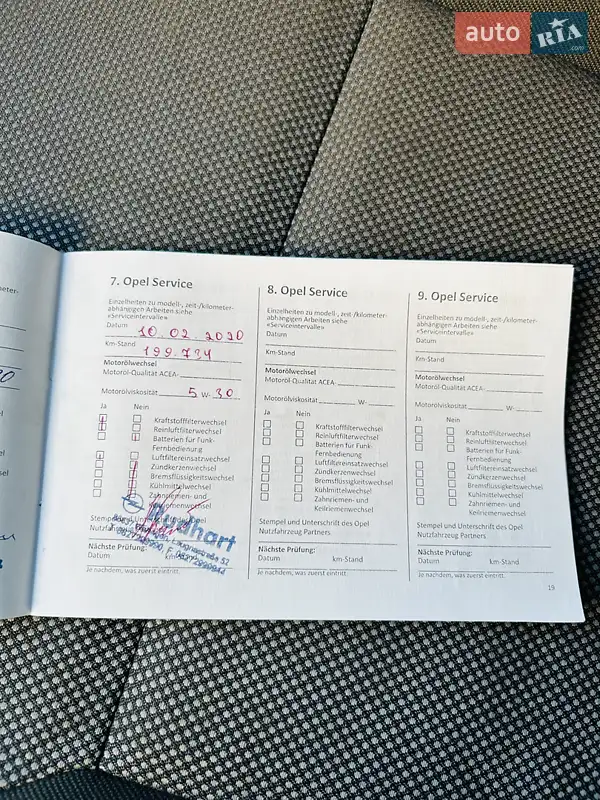 auto RIA .com
7. Opel Service
Einzelheiten zu modell-, zeit-/kilometer-
abhängigen Arbeiten siehe
«Serviceintervalle»
Datum 10.02.2020
Km-Stand 199.734
Motorölwechsel
Motoröl-Qualität ACEA-
Motorölviskosität 5 W- 30
Ja Nein
Kraftstofffilterwechsel
Reinluftfilterwechsel
Batterien für Funk-
Fernbedienung
Luftfiltereinsatzwechsel
Zündkerzenwechsel
Bremsflüssigkeitswechsel
Kühlmittelwechsel
Zahnriemen- und
Keilriemenwechsel
Stempel und Unterschrift des Opel
Nutzfahrzeug
Nächste Prüfung:
Datum km-Stand
Je nachdem, was zuerst eintritt.
8. Opel Service
Einzelheiten zu modell-, zeit-/kilometer-
abhängigen Arbeiten siehe
«Serviceintervalle»
Datum
Km-Stand
Motorölwechsel
Motoröl-Qualität ACEA-
Motorölviskosität W-
Ja Nein
Kraftstofffilterwechsel
Reinluftfilterwechsel
Batterien für Funk-
Fernbedienung
Luftfiltereinsatzwechsel
Zündkerzenwechsel
Bremsflüssigkeitswechsel
Kühlmittelwechsel
Zahnriemen- und
Keilriemenwechsel
Stempel und Unterschrift des Opel
Nutzfahrzeug Partners
Nächste Prüfung:
Datum km-Stand
Je nachdem, was zuerst eintritt.
9. Opel Service
Einzelheiten zu modell-, zeit-/kilometer-
abhängigen Arbeiten siehe
«Serviceintervalle»
Datum
Km-Stand
Motorölwechsel
Motoröl-Qualität ACEA-
Motorölviskosität W-
Ja Nein
Kraftstofffilterwechsel
Reinluftfilterwechsel
Batterien für Funk-
Fernbedienung
Luftfiltereinsatzwechsel
Zündkerzenwechsel
Bremsflüssigkeitswechsel
Kühlmittelwechsel
Zahnriemen- und
Keilriemenwechsel
Stempel und Unterschrift des Opel
Nutzfahrzeug Partners
Nächste Prüfung:
Datum km-Stand
Je nachdem, was zuerst eintritt.
19